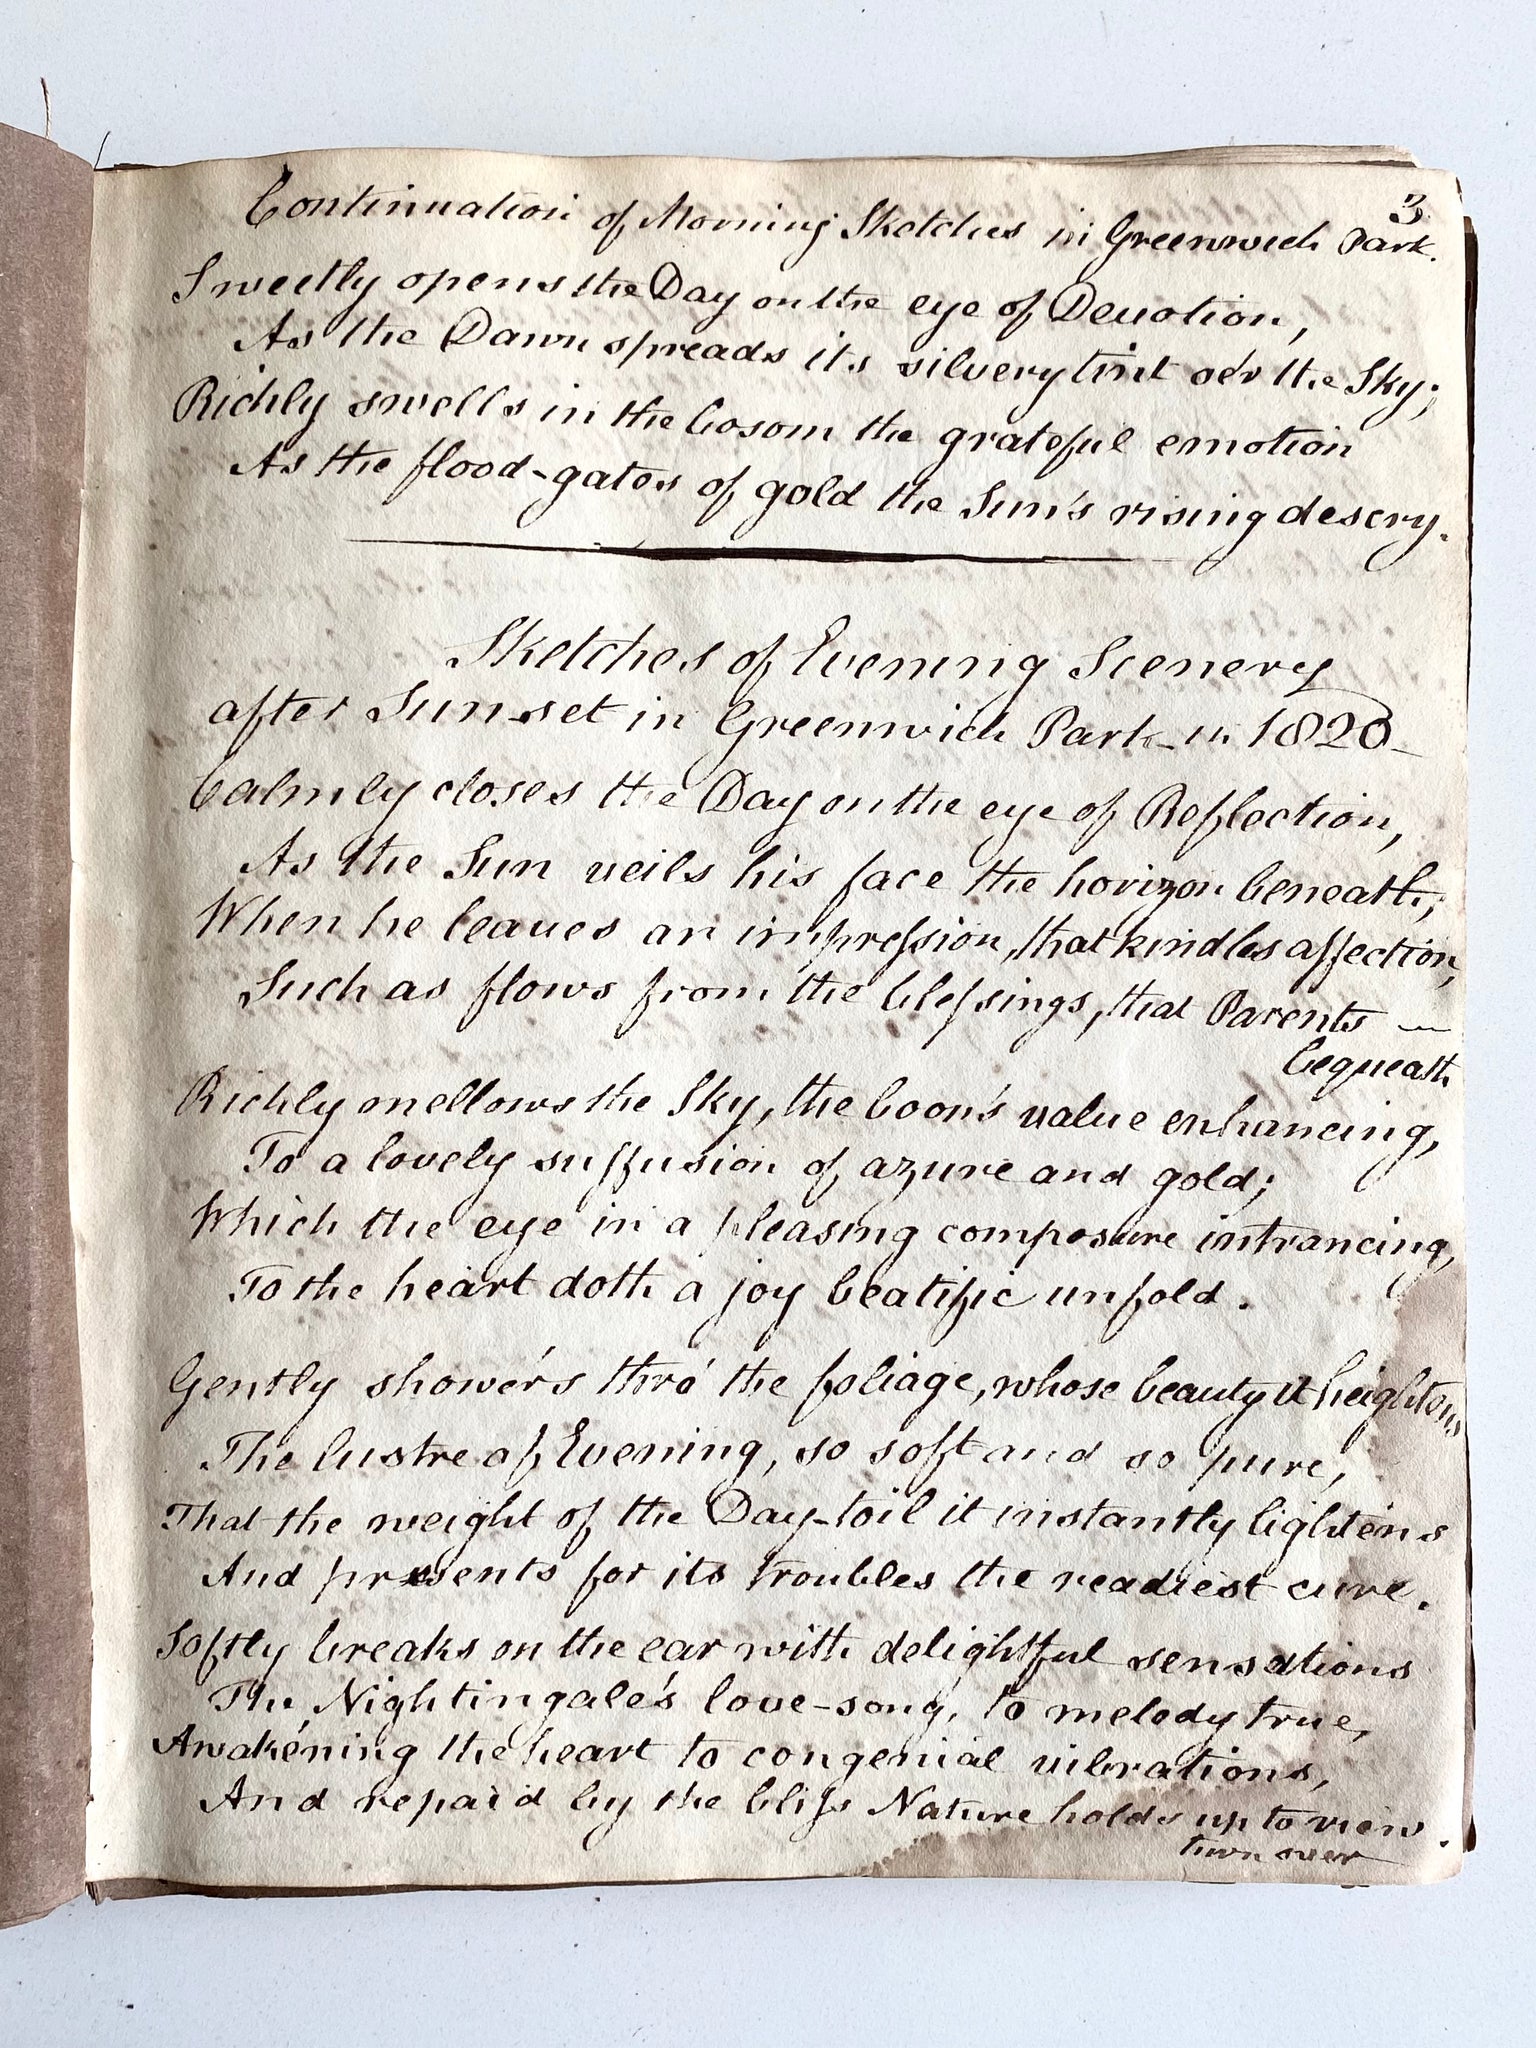 3
Continuation of Morning Sketches in Greenwich Park.
Sweetly opens the Day on the eye of Devotion,
As the Dawn spreads its silvery tint oe'r the Sky;
Richly swells in the bosom the grateful emotion
As the flood-gates of gold the Sun's rising descry.
Sketches of Evening Scenery
after Sun-set in Greenwich Park in 1820
Calmly closes the Day on the eye of Reflection,
As the Sun veils his face the horizon beneath;
When he leaves an impression, that kindles affection,
Such as flows from the blessings, that Parents —
bequeath
Richly mellows the Sky, the boon's value enhancing,
To a lovely suffusion of azure and gold;
Which the eye in a pleasing composure intrancing,
To the heart doth a joy beatific unfold.
Gently show'rs thro' the foliage, whose beauty it heightens
The lustre of Evening, so soft and so pure,
That the weight of the Day-toil it instantly lightens
And presents for its troubles the readiest cure.
Softly breaks on the ear with delightful sensations
The Nightingale's love-song, to melody true,
Awak'ning the heart to congenial vibrations,
And repaid by the bliss Nature holds up to view.
turn over